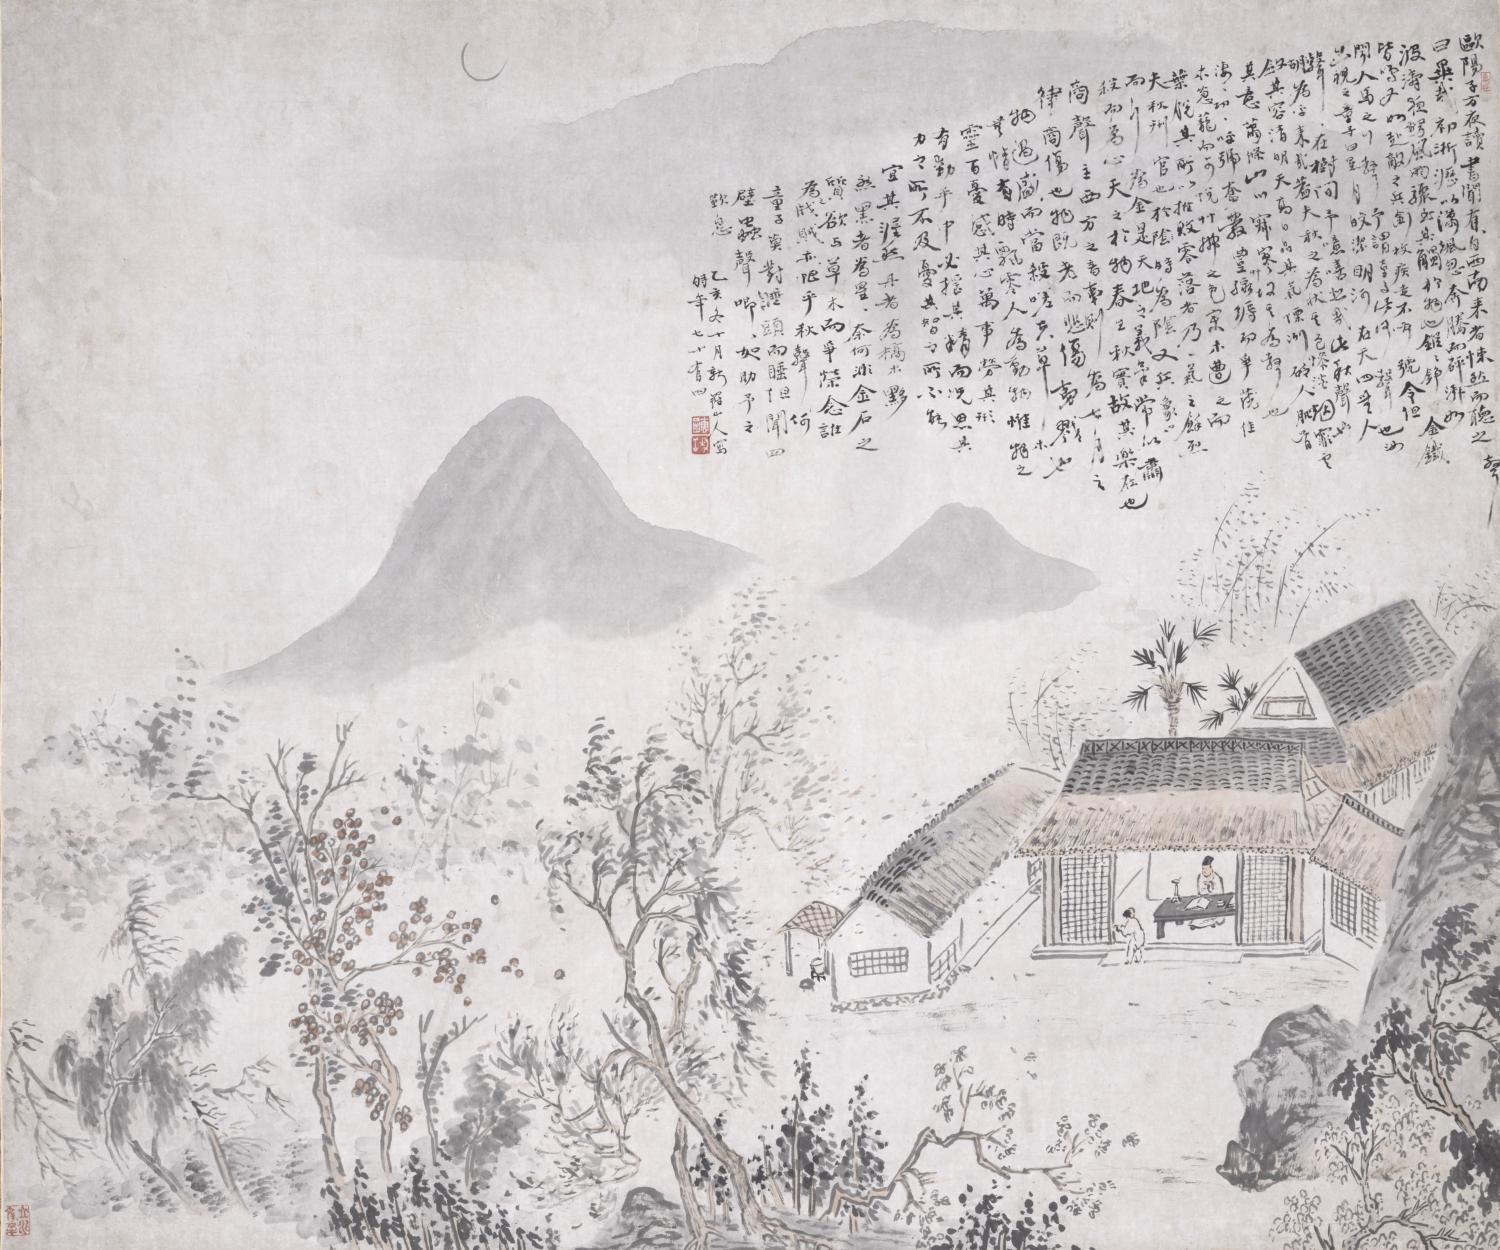 歐陽子方夜讀書聞有自西南來者悚然而聽之
聲
曰異哉初淅瀝以瀟颯忽奔騰而砰湃如
波濤夜驚風雨驟至其觸於物也鏦鏦錚錚金鐵
皆鳴又如赴敵之兵銜枚疾走不聞號令但
聞人馬之行聲予謂童子此何聲也汝
出視之童子曰星月皎潔明河在天四無人
聲聲在樹間予曰噫嘻悲哉此秋聲也
胡為乎來哉蓋夫秋之為狀其色慘淡烟霏雲
斂其容清明天高日晶其氣慄冽砭人肌骨
其意蕭條山川寂寥故其為聲也
淒淒切切呼號奮發豐草綠縟而爭茂佳
木蔥蘢而可悅草拂之色變木遭之而
葉脫其所以摧敗零落者乃一氣之餘烈
夫秋刑官也於陰時為陰又兵象也
而行為金是天地之義氣常以肅
殺而為心天之於物春生秋實故其樂在也
商聲主西方之音夷則為七月之
律商傷也物既老而悲傷夷戮也
物過盛而當殺嗟夫草木
無情有時飄零人為動物惟物之
靈百憂感其心萬事勞其形
有動乎中必搖其精而況思其
力之所不及憂其智之所不能
宜其渥然丹者為槁木黟
然黑者為星星奈何非金石之
質欲與草木而爭榮念誰
為之戕賊亦恨乎秋聲何
童子莫對垂頭而睡但聞四
壁蟲聲唧唧如助予之
歎息
乙亥冬十月新羅山人寫
時年七十有四